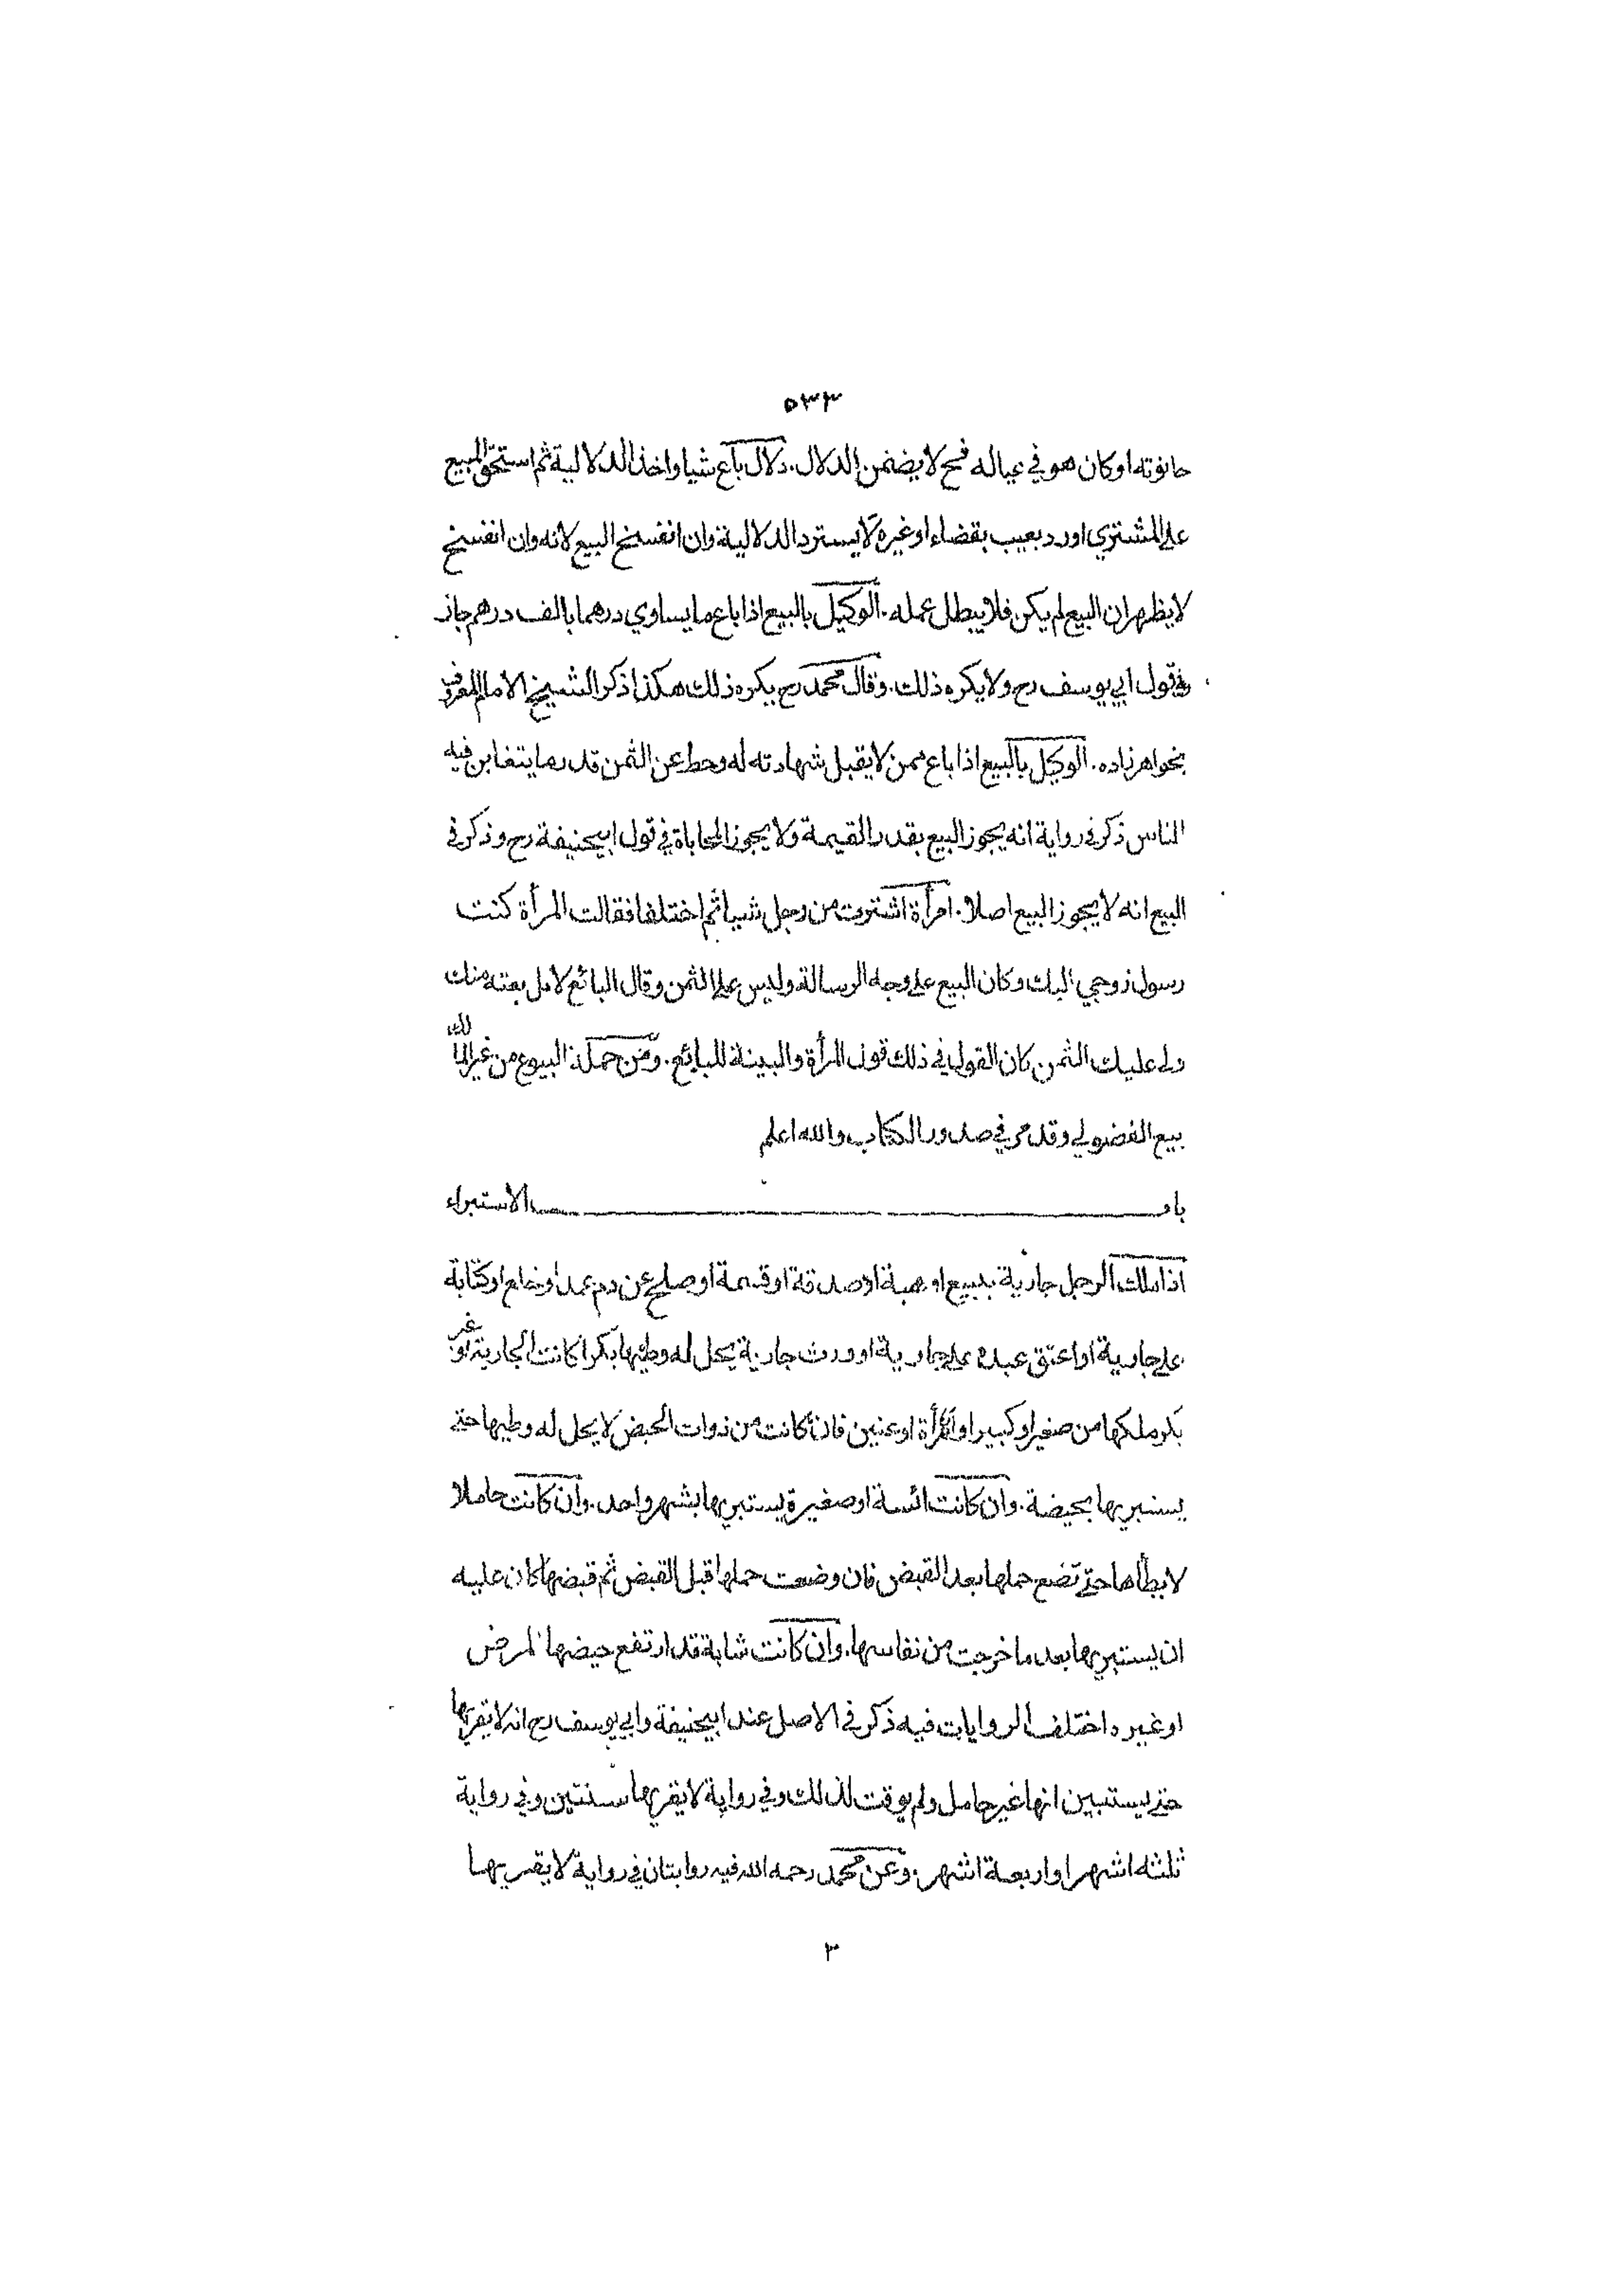 ٥٣٣
حانوته او كان هو في عياله فح لا يضمن الدلال. دلال باع شيا واخذ الدلالية ثم استحق المبيع
على المشتري او رد بعيب بقضاء او غيره لا يسترد الدلالية وان انفسخ البيع لانه وان انفسخ
لا يظهر ان البيع لم يكن فلا يبطل عمله. الوكيل بالبيع اذا باع ما يساوي درهما بالف درهم جاز
في قول ابي يوسف رح ولا يكره ذلك. وقال محمد رح يكره ذلك هكذا ذكر الشيخ الامام المعروف
بخواهر زاده. الوكيل بالبيع اذا باع ممن لا يقبل شهادته له وحط عن الثمن قدر ما يتغابن فيه
الناس ذكر في رواية انه يجوز البيع بقدر القيمة ولا يجوز المحاباة في قول ابيحنيفة رح وذكر في
البيع انه لا يجوز البيع اصلا. امرأة اشترت من رجل شيا ثم اختلفا فقالت المرأة كنت
رسول زوجي اليك وكان البيع على وجه الرسالة وليس علي الثمن وقال البائع لا بل بعته منك
ولي عليك الثمن كان القول في ذلك قول المرأة والبينة للبايع. ومن جملة البيوع من غير المالك
بيع الفضولي وقد مر في صدور الكتاب والله اعلم
باب الاستبراء
اذا ملك الرجل جارية ببيع او هبة او صدقة او قسمة او صلح عن دم عمد او خلع او كتابة
على جارية او اعتق عبده على جارية او ورث جارية يحل له وطيها بكرا كانت الجارية او غير
بكر ملكها من صغير او كبير او امرأة او عنين فان كانت من ذوات الحيض لا يحل له وطيها حتى
يستبريها بحيضة. وان كانت ائسة او صغيرة يستبريها بشهر واحد. وان كانت حاملا
لا يطأها حتى تضع حملها بعد القبض فان وضعت حملها قبل القبض ثم قبضها كان عليه
ان يستبريها بعد ما خرجت من نفاسها. وان كانت شابة قد ارتفع حيضها لمرض
او غيره اختلف الروايات فيه ذكر في الاصل عند ابيحنيفة وابي يوسف رح انه لا يقربها
حتى يستبين انها غير حامل ولم يوقت لذلك وفي رواية لا يقربها سنتين وفي رواية
ثلثه اشهر او اربعة اشهر. وعن محمد رحمه الله فيه روايتان في رواية لا يقربها
٣